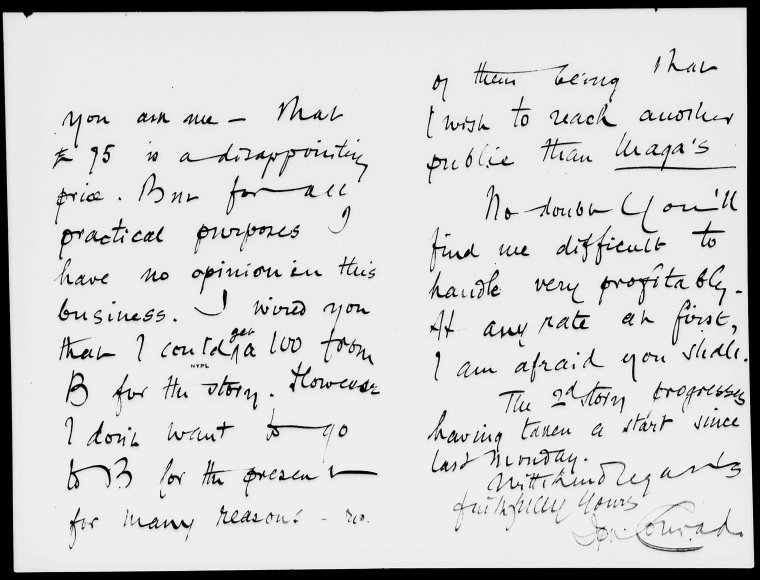 you ask me – that
£ 95 is a disappointing
price. But for all
practical purposes I
have no opinion in this
business. I wired you
that I could get a 100 from
NYPL
B for the story. However
I don't want to go
to B for the present
for many reasons –
of them being that
I wish to reach another
public than Maga's
No doubt you'll
find me difficult to
handle very profitably.
At any rate at first,
I am afraid you shall.
The 2d story progresses
having taken a start since
last Monday.
With kind regards
faithfully yours
Jph. Conrad.